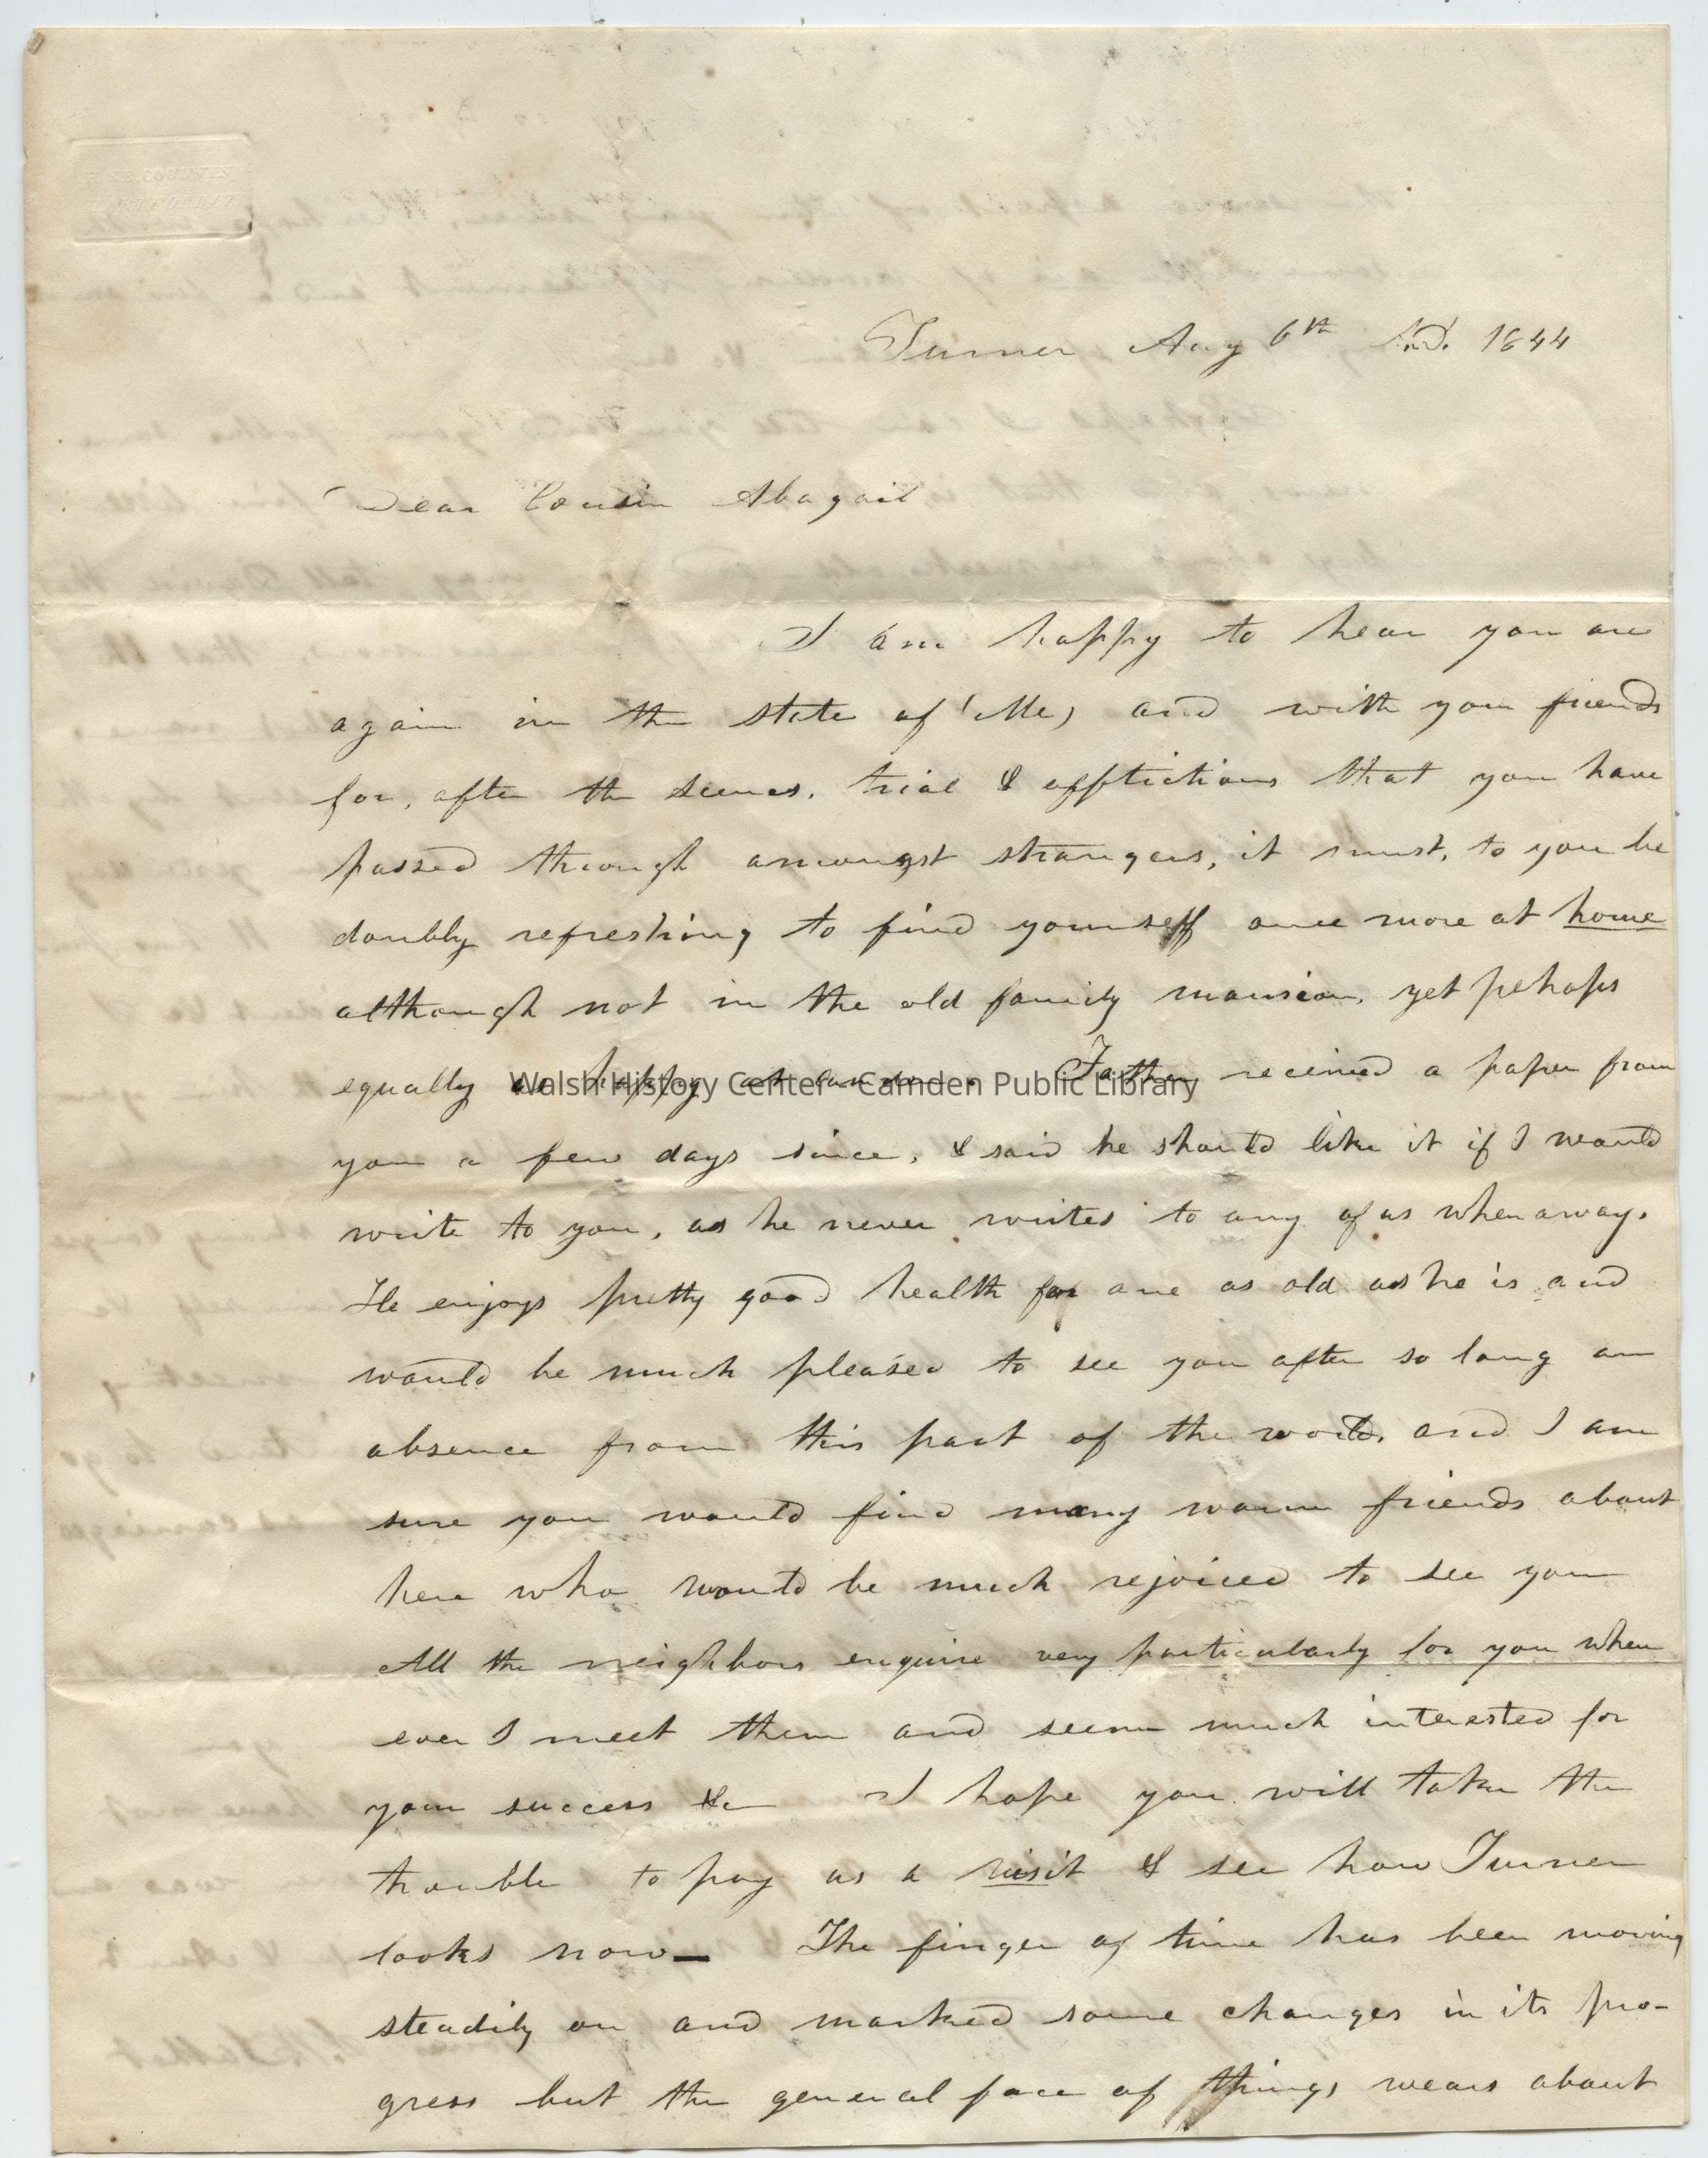 Turner Aug 6th A.D. 1844
Dear Cousin Abagail
I am happy to hear you are
again in the state of (Me) and with your friends
for, after the scenes, trial & afflictions that you have
passed through amoungst strangers, it must, to you be
doubly refreshing to find yourself once more at home
although not in the old family mansion, yet pehaps
equally as happy at Camden. Father received a paper from
you a few days since, & said he should like it if I would
write to you, as he never writes to any of us when away.
He enjoys pretty good health for one as old as he is and
would be much pleased to see you after so long an
absence from this part of the world, and I am
sure you would find many warm friends about
here who would be much rejoiced to see you
All the neighbors enquire very particularly for you when
ever I meet them and seem much interested for
your success &c I hope you will take the
trouble to pay us a visit & see how Turner
looks now— The finger of time has been moving
steadily on and marked some changes in its pro-
gress but the general face of things wears about
Walsh History Center - Camden Public Library